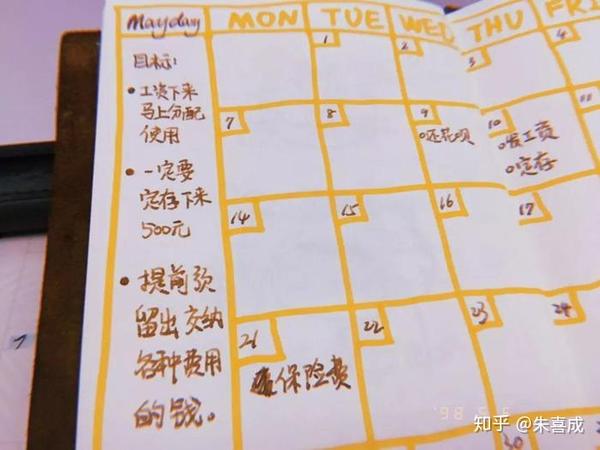 Mayday
MON TUE WED THU FRI
目标:
• 工资下来
马上分配
使用
• 一定要
定存下来
500元
• 提前预
留出交纳
各种费用
的钱。
1 2 3 4
7 8 9 10
还花呗
发工资
定存
14 15 16 17
21 22 23 24
保险费
30
'98 5 5
知乎 @朱喜成